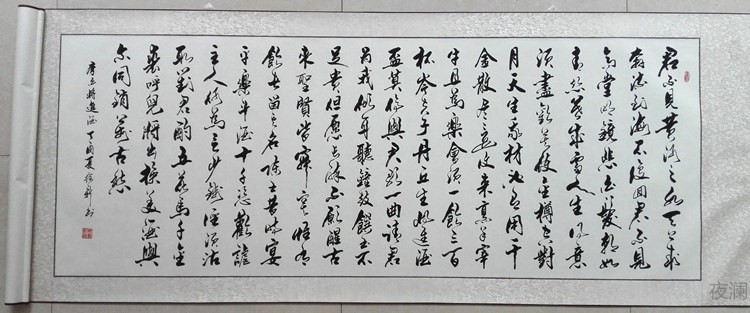 君不見黃河之水天上來
奔流到海不復回君不見
高堂明鏡悲白髮朝如
青絲暮成雪人生得意
須盡歡莫使金樽空對
月天生我材必有用千
金散盡還復來烹羊宰
牛且為樂會須一飲三百
杯岑夫子丹丘生將進酒
盃莫停與君歌一曲請君
為我傾耳聽鐘鼓饌玉不
足貴但願長醉不願醒古
來聖賢皆寂寞惟有
飲者留其名陳王昔時宴
平樂斗酒十千恣歡謔
主人何為言少錢徑須沽
取對君酌五花馬千金
裘呼兒將出換美酒與
爾同銷萬古愁
李白將進酒丁酉夏書
夜澜